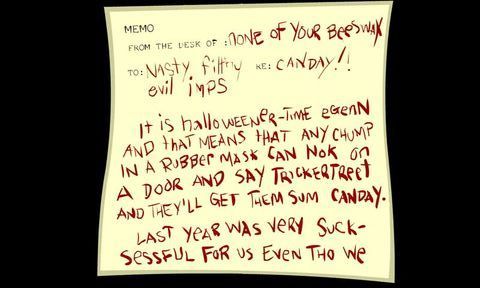 MEMO
FROM THE DESK OF : NONE OF YOUR BEESWAX
TO: NASTY filthy RE: CANDAY!!
evil imps
It is halloweener-time egenn
AND that MEANS tHAT ANY CHUMP
IN A RUBBER MASK CAN NOK on
A DOOR AND SAY TRICKERTREET
AND tHEY'LL GET THEM SUM CANDAY.
LAST YEAR WAS VERY SUCK-
SESSFUL FOR US EVEN THO WE